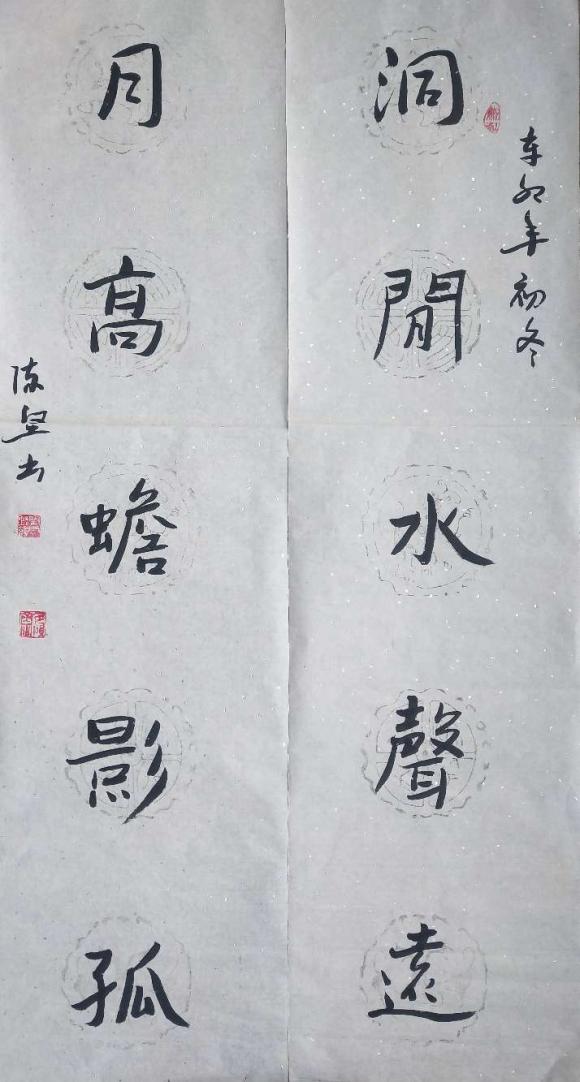 辛卯年初冬
洞閒水聲遠
月高蟾影孤
陈坚书